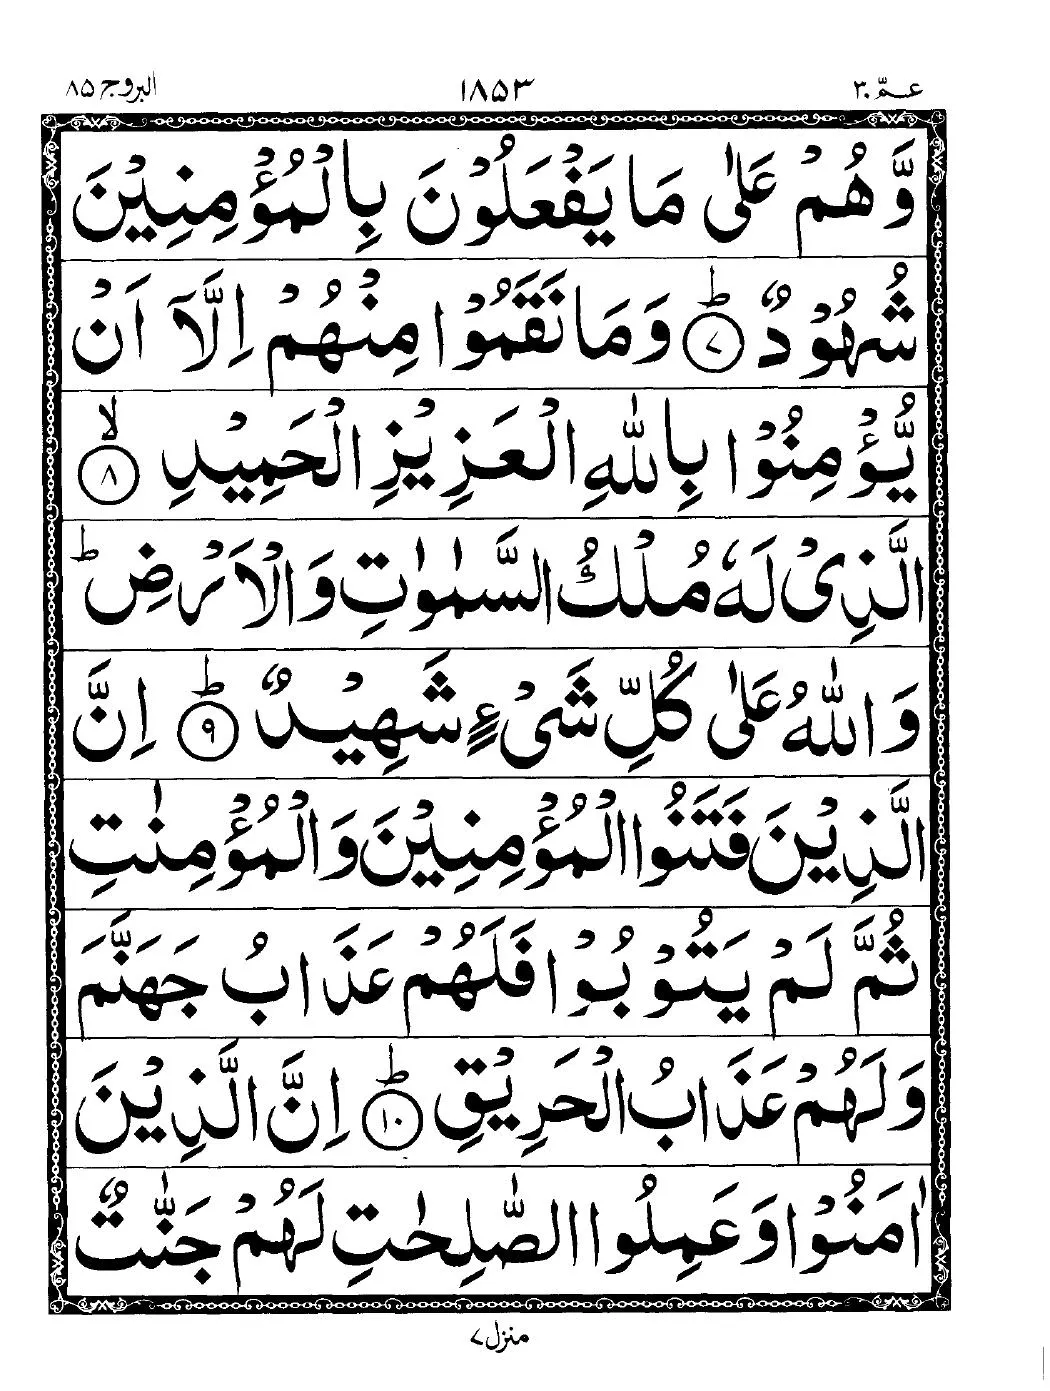 عـمّ ٣٠ ١٨٥٣ البروج ٨٥
وَّهُمْ عَلٰى مَا يَفْعَلُوْنَ بِالْمُؤْمِنِيْنَ
شُهُوْدٌ ؕ‏ ﴿۷﴾ وَمَا نَقَمُوْا مِنْهُمْ اِلَّاۤ اَنْ
يُّؤْمِنُوْا بِاللّٰهِ الْعَزِيْزِ الْحَمِيْدِ ۙ‏ ﴿۸﴾
الَّذِىْ لَهٗ مُلْكُ السَّمٰوٰتِ وَالْاَرْضِ ؕ
وَاللّٰهُ عَلٰى كُلِّ شَىْءٍ شَهِيْدٌ ؕ‏ ﴿۹﴾ اِنَّ
الَّذِيْنَ فَتَنُوا الْمُؤْمِنِيْنَ وَالْمُؤْمِنٰتِ
ثُمَّ لَمْ يَتُوْبُوْا فَلَهُمْ عَذَابُ جَهَنَّمَ
وَلَهُمْ عَذَابُ الْحَرِيْقِ ؕ‏ ﴿۱۰﴾ اِنَّ الَّذِيْنَ
اٰمَنُوْا وَعَمِلُوا الصّٰلِحٰتِ لَهُمْ جَنّٰتٌ
منزل ۷